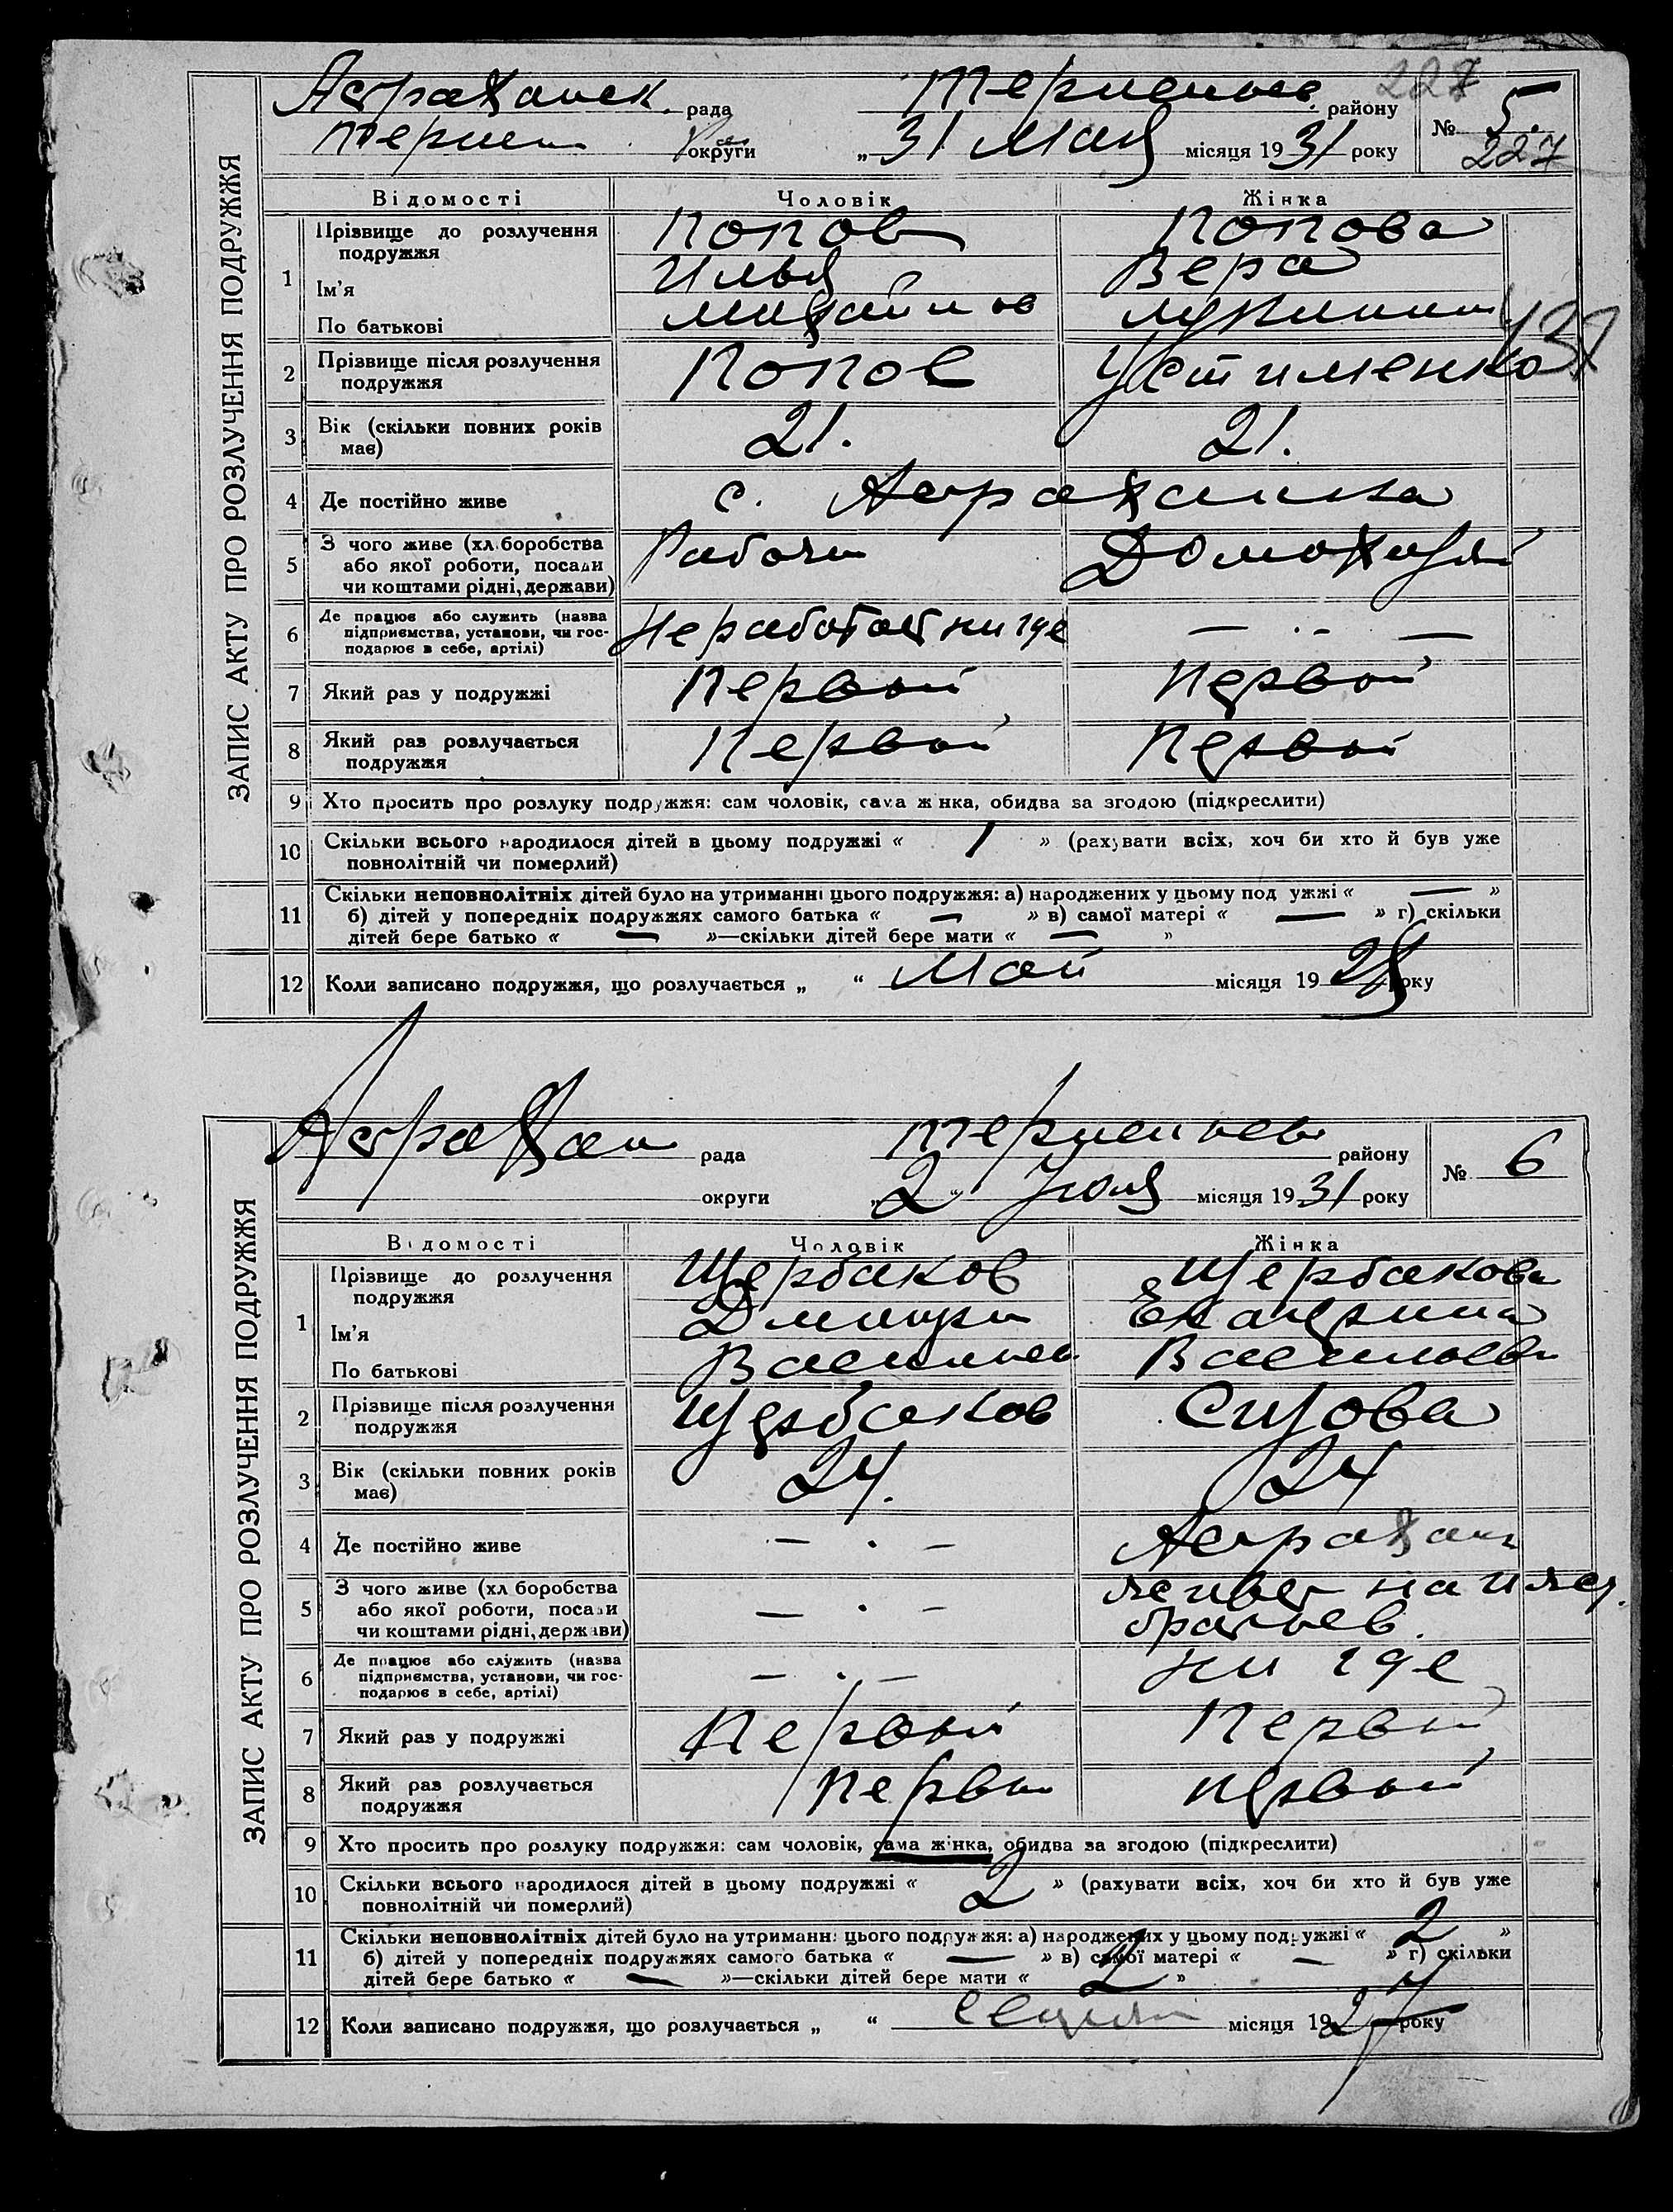 ЗАПИС АКТУ ПРО РОЗЛУЧЕННЯ ПОДРУЖЖЯ
Астраханск. рада Терпеньев. району 227
Терпен округи „31 Мая місяця 1931 року № 5.
227
Відомості Чоловік Жінка
1 Прізвище до розлучення подружжя Попов Попова
Ім'я Илья Вера
По батькові Михайлов
137
2 Прізвище після розлучення подружжя Попов Устименко
3 Вік (скільки повних років має) 21. 21.
4 Де постійно живе с. Астраханка
5 З чого живе (хл.боробства або якої роботи, посади чи коштами рідні, держави) Рабочи Домохозяй
6 Де працює або служить (назва підприємства, установи, чи господарює в себе, артілі) Не работает ни где — „ —
7 Який раз у подружжі Первый Первый
8 Який раз розлучається подружжя Первый Первый
9 Хто просить про розлуку подружжя: сам чоловік, сама жінка, обидва за згодою (підкреслити)
10 Скільки всього народилося дітей в цьому подружжі « 1 » (рахувати всіх, хоч би хто й був уже
повнолітній чи померлий)
11 Скільки неповнолітніх дітей було на утриманні цього подружжя: а) народжених у цьому подружжі « — »
б) дітей у попередніх подружжях самого батька « — » в) самої матері « — » г) скільки
дітей бере батько « — »—скільки дітей бере мати « — »
12 Коли записано подружжя, що розлучається „ “ Май місяця 1928 року
ЗАПИС АКТУ ПРО РОЗЛУЧЕННЯ ПОДРУЖЖЯ
Астрахан рада Терпеньев району
округи „2“ Июля місяця 1931 року № 6
Відомості Чоловік Жінка
1 Прізвище до розлучення подружжя Щербаков Щербакова
Ім'я Дмитри Екатерина
По батькові Васильев Васильев
2 Прізвище після розлучення подружжя Щербаков
3 Вік (скільки повних років має) 24. 24
4 Де постійно живе — . — Астрахан
5 З чого живе (хл.боробства або якої роботи, посади чи коштами рідні, держави) — . — живет на
братьев.
6 Де працює або служить (назва підприємства, установи, чи господарює в себе, артілі) — . — ни где
7 Який раз у подружжі Первый Первый
8 Який раз розлучається подружжя Первы Первый
9 Хто просить про розлуку подружжя: сам чоловік, сама жінка, обидва за згодою (підкреслити)
10 Скільки всього народилося дітей в цьому подружжі « 2 » (рахувати всіх, хоч би хто й був уже
повнолітній чи померлий)
11 Скільки неповнолітніх дітей було на утриманні цього подружжя: а) народжених у цьому подружжі « 2 »
б) дітей у попередніх подружжях самого батька « — » в) самої матері « — » г) скільки
дітей бере батько « — »—скільки дітей бере мати « 2 »
12 Коли записано подружжя, що розлучається „ “ місяця 1927 року